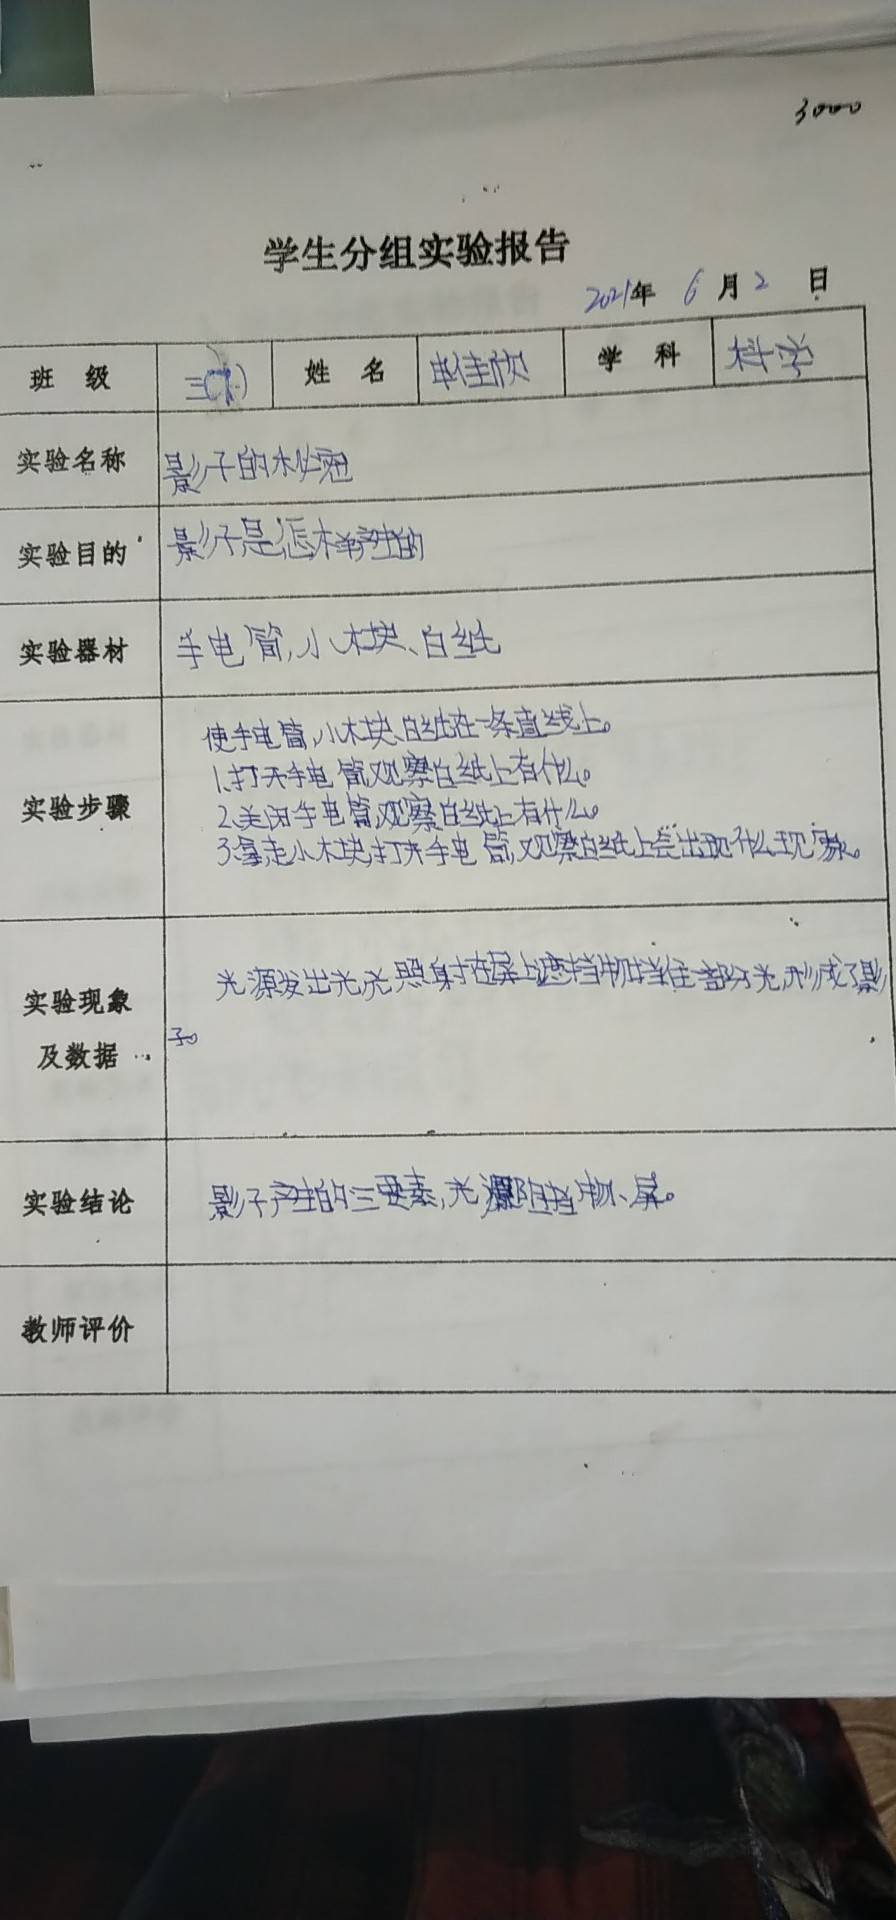 3000
学生分组实验报告
2021年 6 月 2 日
班 级 三 姓 名 佳欣 学 科 科学
实验名称 影子的秘密
实验目的 影子是怎样产生的
实验器材 手电筒,小木块、白纸
使手电筒,小木块、白纸在一条直线上。
1.打开手电筒,观察白纸上有什么。
实验步骤
2.关闭手电筒,观察白纸上有什么。
3.拿走小木块,打开手电筒,观察白纸上会出现什么现象。
光源发出光,光照射在屏上遮挡物挡住一部分光,形成了影
实验现象
子。
及数据
实验结论 影子产生的三要素,光源阻挡物、屏。
教师评价